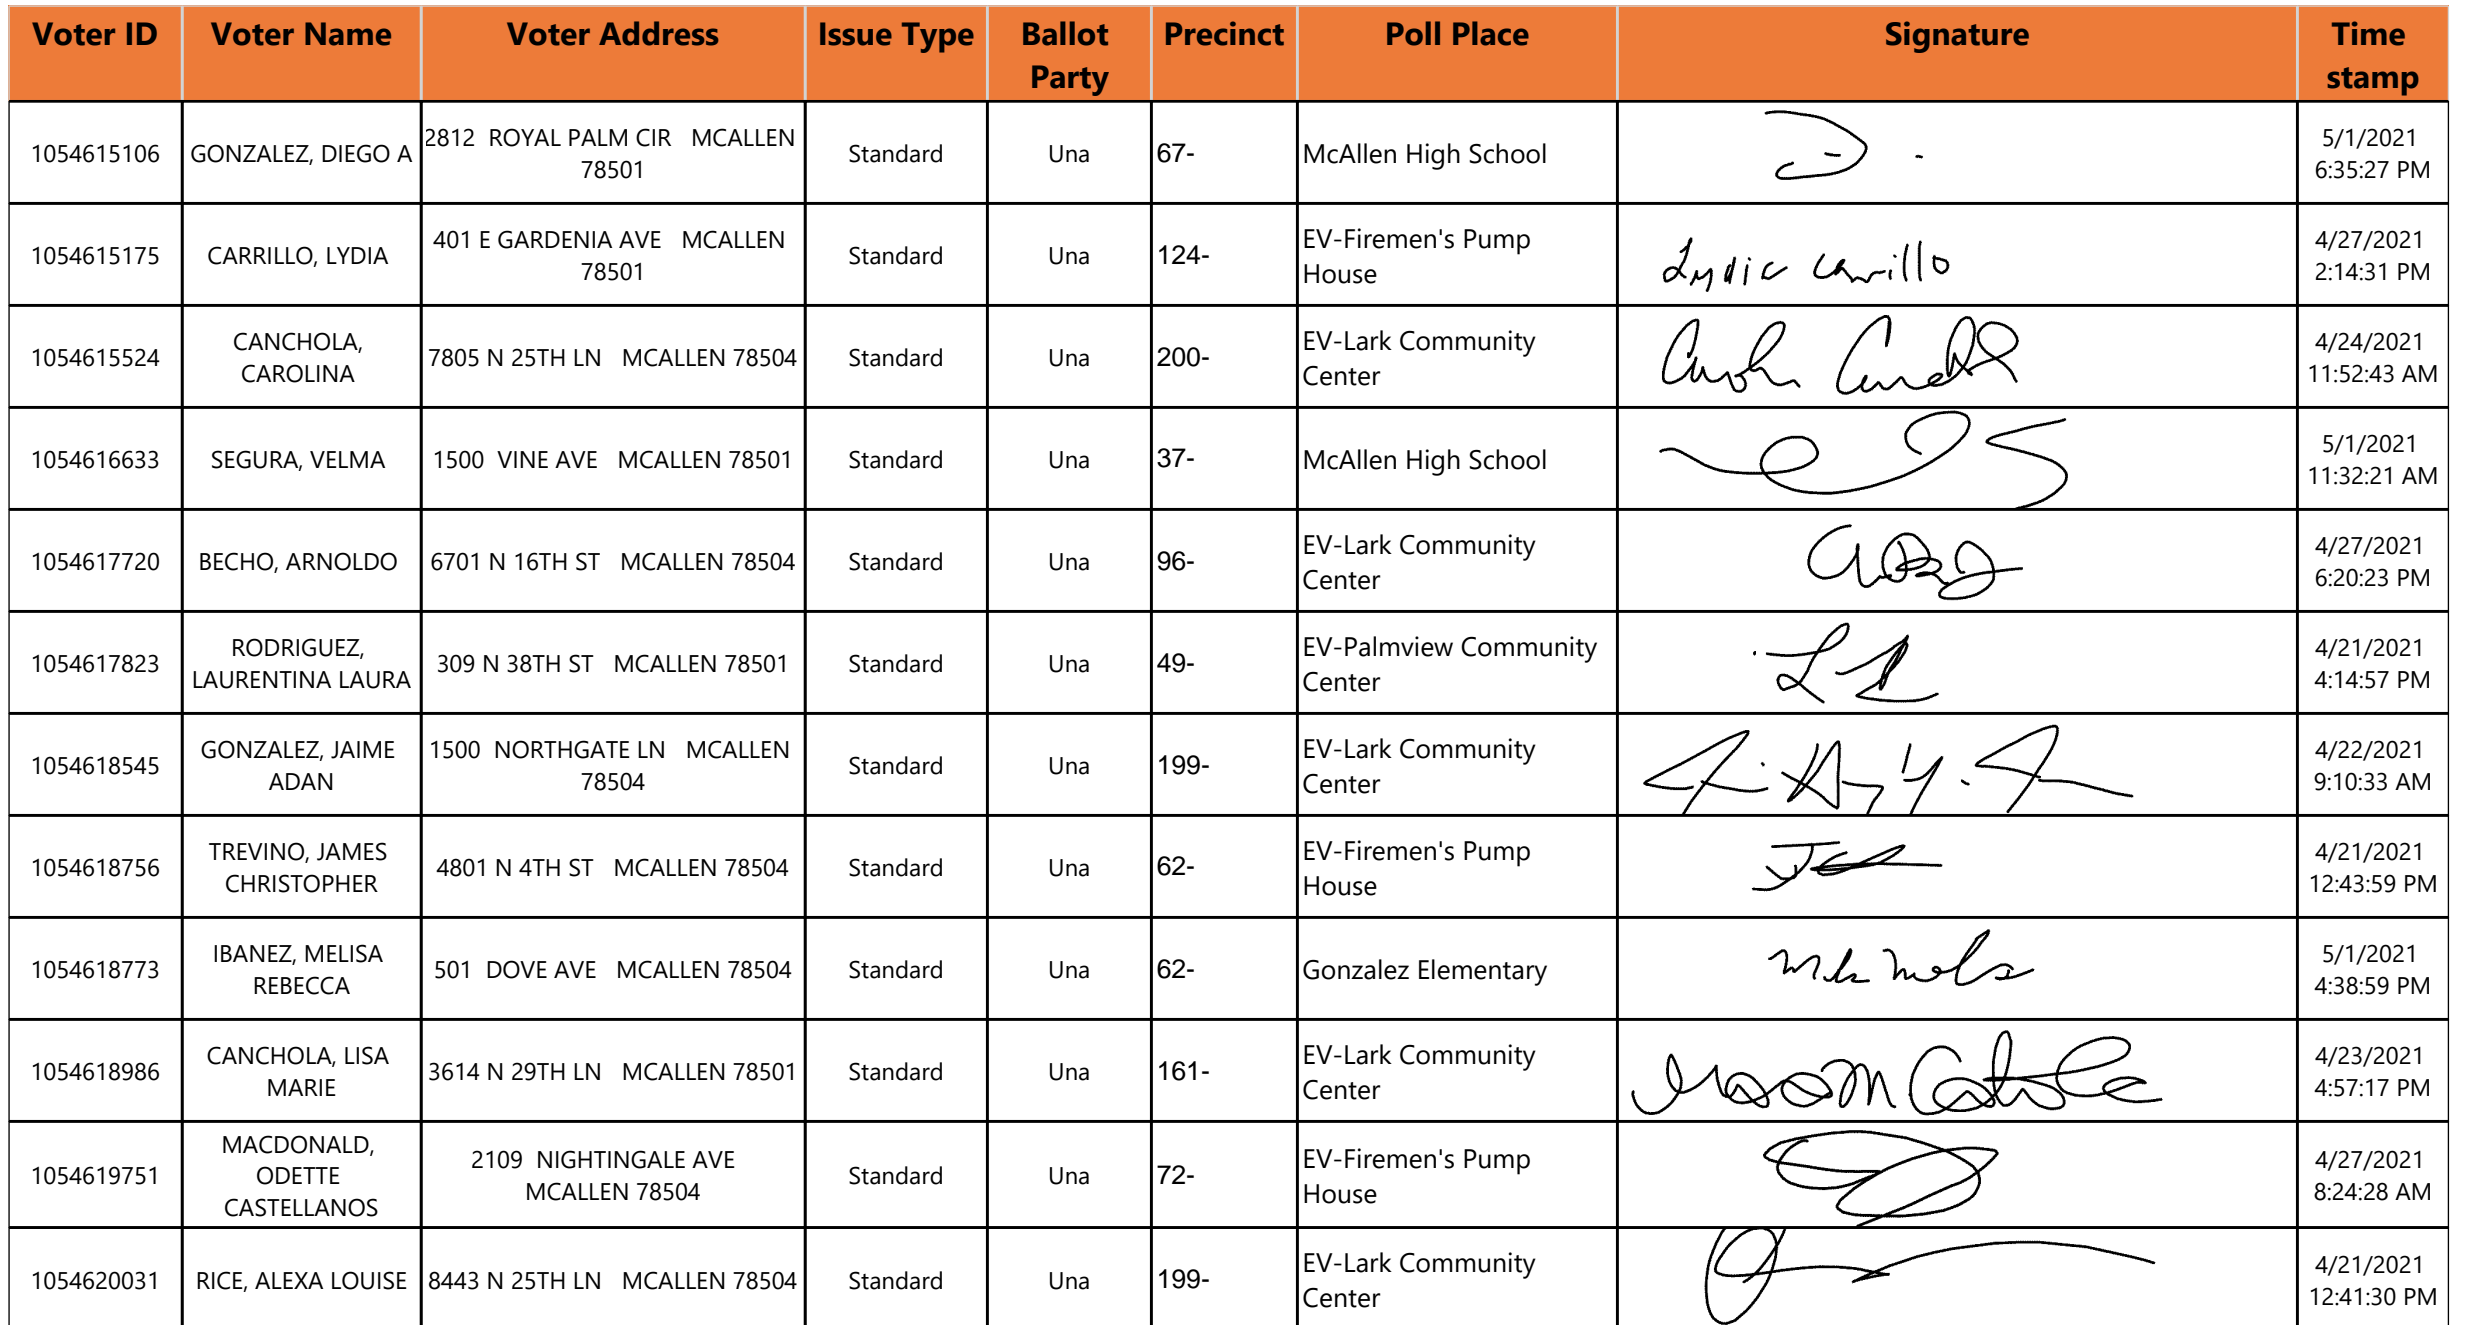 Voter ID Voter Name Voter Address Issue Type Ballot Party Precinct Poll Place Signature Time stamp
1054615106 GONZALEZ, DIEGO A 2812 ROYAL PALM CIR MCALLEN 78501 Standard Una 67- McAllen High School 5/1/2021 6:35:27 PM
1054615175 CARRILLO, LYDIA 401 E GARDENIA AVE MCALLEN 78501 Standard Una 124- EV-Firemen's Pump House Lydia Carrillo 4/27/2021 2:14:31 PM
1054615524 CANCHOLA, CAROLINA 7805 N 25TH LN MCALLEN 78504 Standard Una 200- EV-Lark Community Center 4/24/2021 11:52:43 AM
1054616633 SEGURA, VELMA 1500 VINE AVE MCALLEN 78501 Standard Una 37- McAllen High School 5/1/2021 11:32:21 AM
1054617720 BECHO, ARNOLDO 6701 N 16TH ST MCALLEN 78504 Standard Una 96- EV-Lark Community Center 4/27/2021 6:20:23 PM
1054617823 RODRIGUEZ, LAURENTINA LAURA 309 N 38TH ST MCALLEN 78501 Standard Una 49- EV-Palmview Community Center 4/21/2021 4:14:57 PM
1054618545 GONZALEZ, JAIME ADAN 1500 NORTHGATE LN MCALLEN 78504 Standard Una 199- EV-Lark Community Center 4/22/2021 9:10:33 AM
1054618756 TREVINO, JAMES CHRISTOPHER 4801 N 4TH ST MCALLEN 78504 Standard Una 62- EV-Firemen's Pump House 4/21/2021 12:43:59 PM
1054618773 IBANEZ, MELISA REBECCA 501 DOVE AVE MCALLEN 78504 Standard Una 62- Gonzalez Elementary 5/1/2021 4:38:59 PM
1054618986 CANCHOLA, LISA MARIE 3614 N 29TH LN MCALLEN 78501 Standard Una 161- EV-Lark Community Center 4/23/2021 4:57:17 PM
1054619751 MACDONALD, ODETTE CASTELLANOS 2109 NIGHTINGALE AVE MCALLEN 78504 Standard Una 72- EV-Firemen's Pump House 4/27/2021 8:24:28 AM
1054620031 RICE, ALEXA LOUISE 8443 N 25TH LN MCALLEN 78504 Standard Una 199- EV-Lark Community Center 4/21/2021 12:41:30 PM